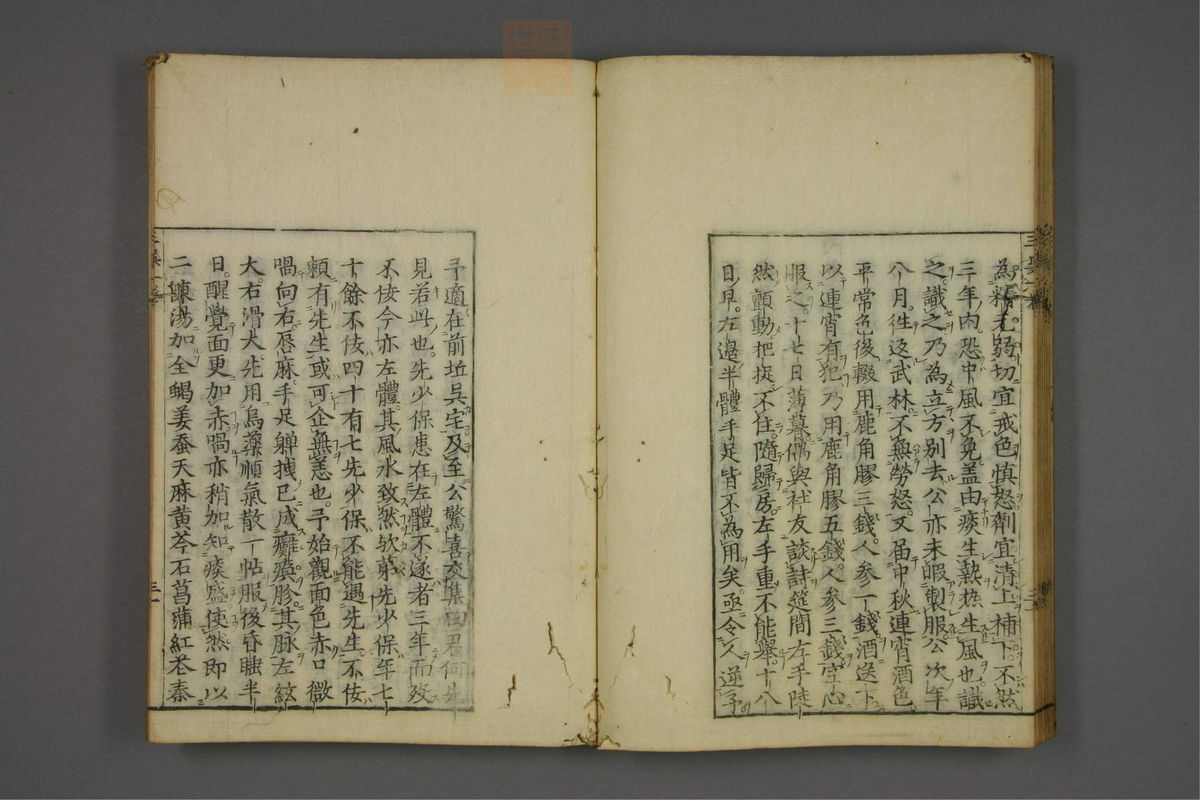 為精尤弱切宜戒色慎怒劑宜清上補下不然
三年內恐中風不免盖由痰生熱熱生風也識
之識之乃為立方別去公亦未暇製服公次年
八月往返武林不無勞怒又届中秋連宵酒色
平常色後輙用鹿角膠三錢人参一錢酒送下
以連宵有犯乃用鹿角膠五錢人参三錢空心
服之十七日薄暮偶與社友談詩筵間左手陡
然顫動把捉不住隨歸房左手重不能舉十八
日早左邊半體手足皆不為用矣亟令人逆予
予適在前坵吳宅及至公驚喜交集曰君何先
見若此也先少保患在左體不遂者三年而殁
不佞今亦左體其風水致然歟第先少保年七
十餘不佞四十有七先少保不能遇先生不佞
頼有先生或可企無恙也予始觀面色赤口微
喎向右唇麻手足軃拽已成癱瘓胗其脉左絃
大右滑大先用烏藥順氣散一帖服後昏睡半
日醒覺面更加赤喎亦稍加知痰盛使然即以
二陳湯加全蝎姜蚕天麻黄芩石菖蒲紅花秦